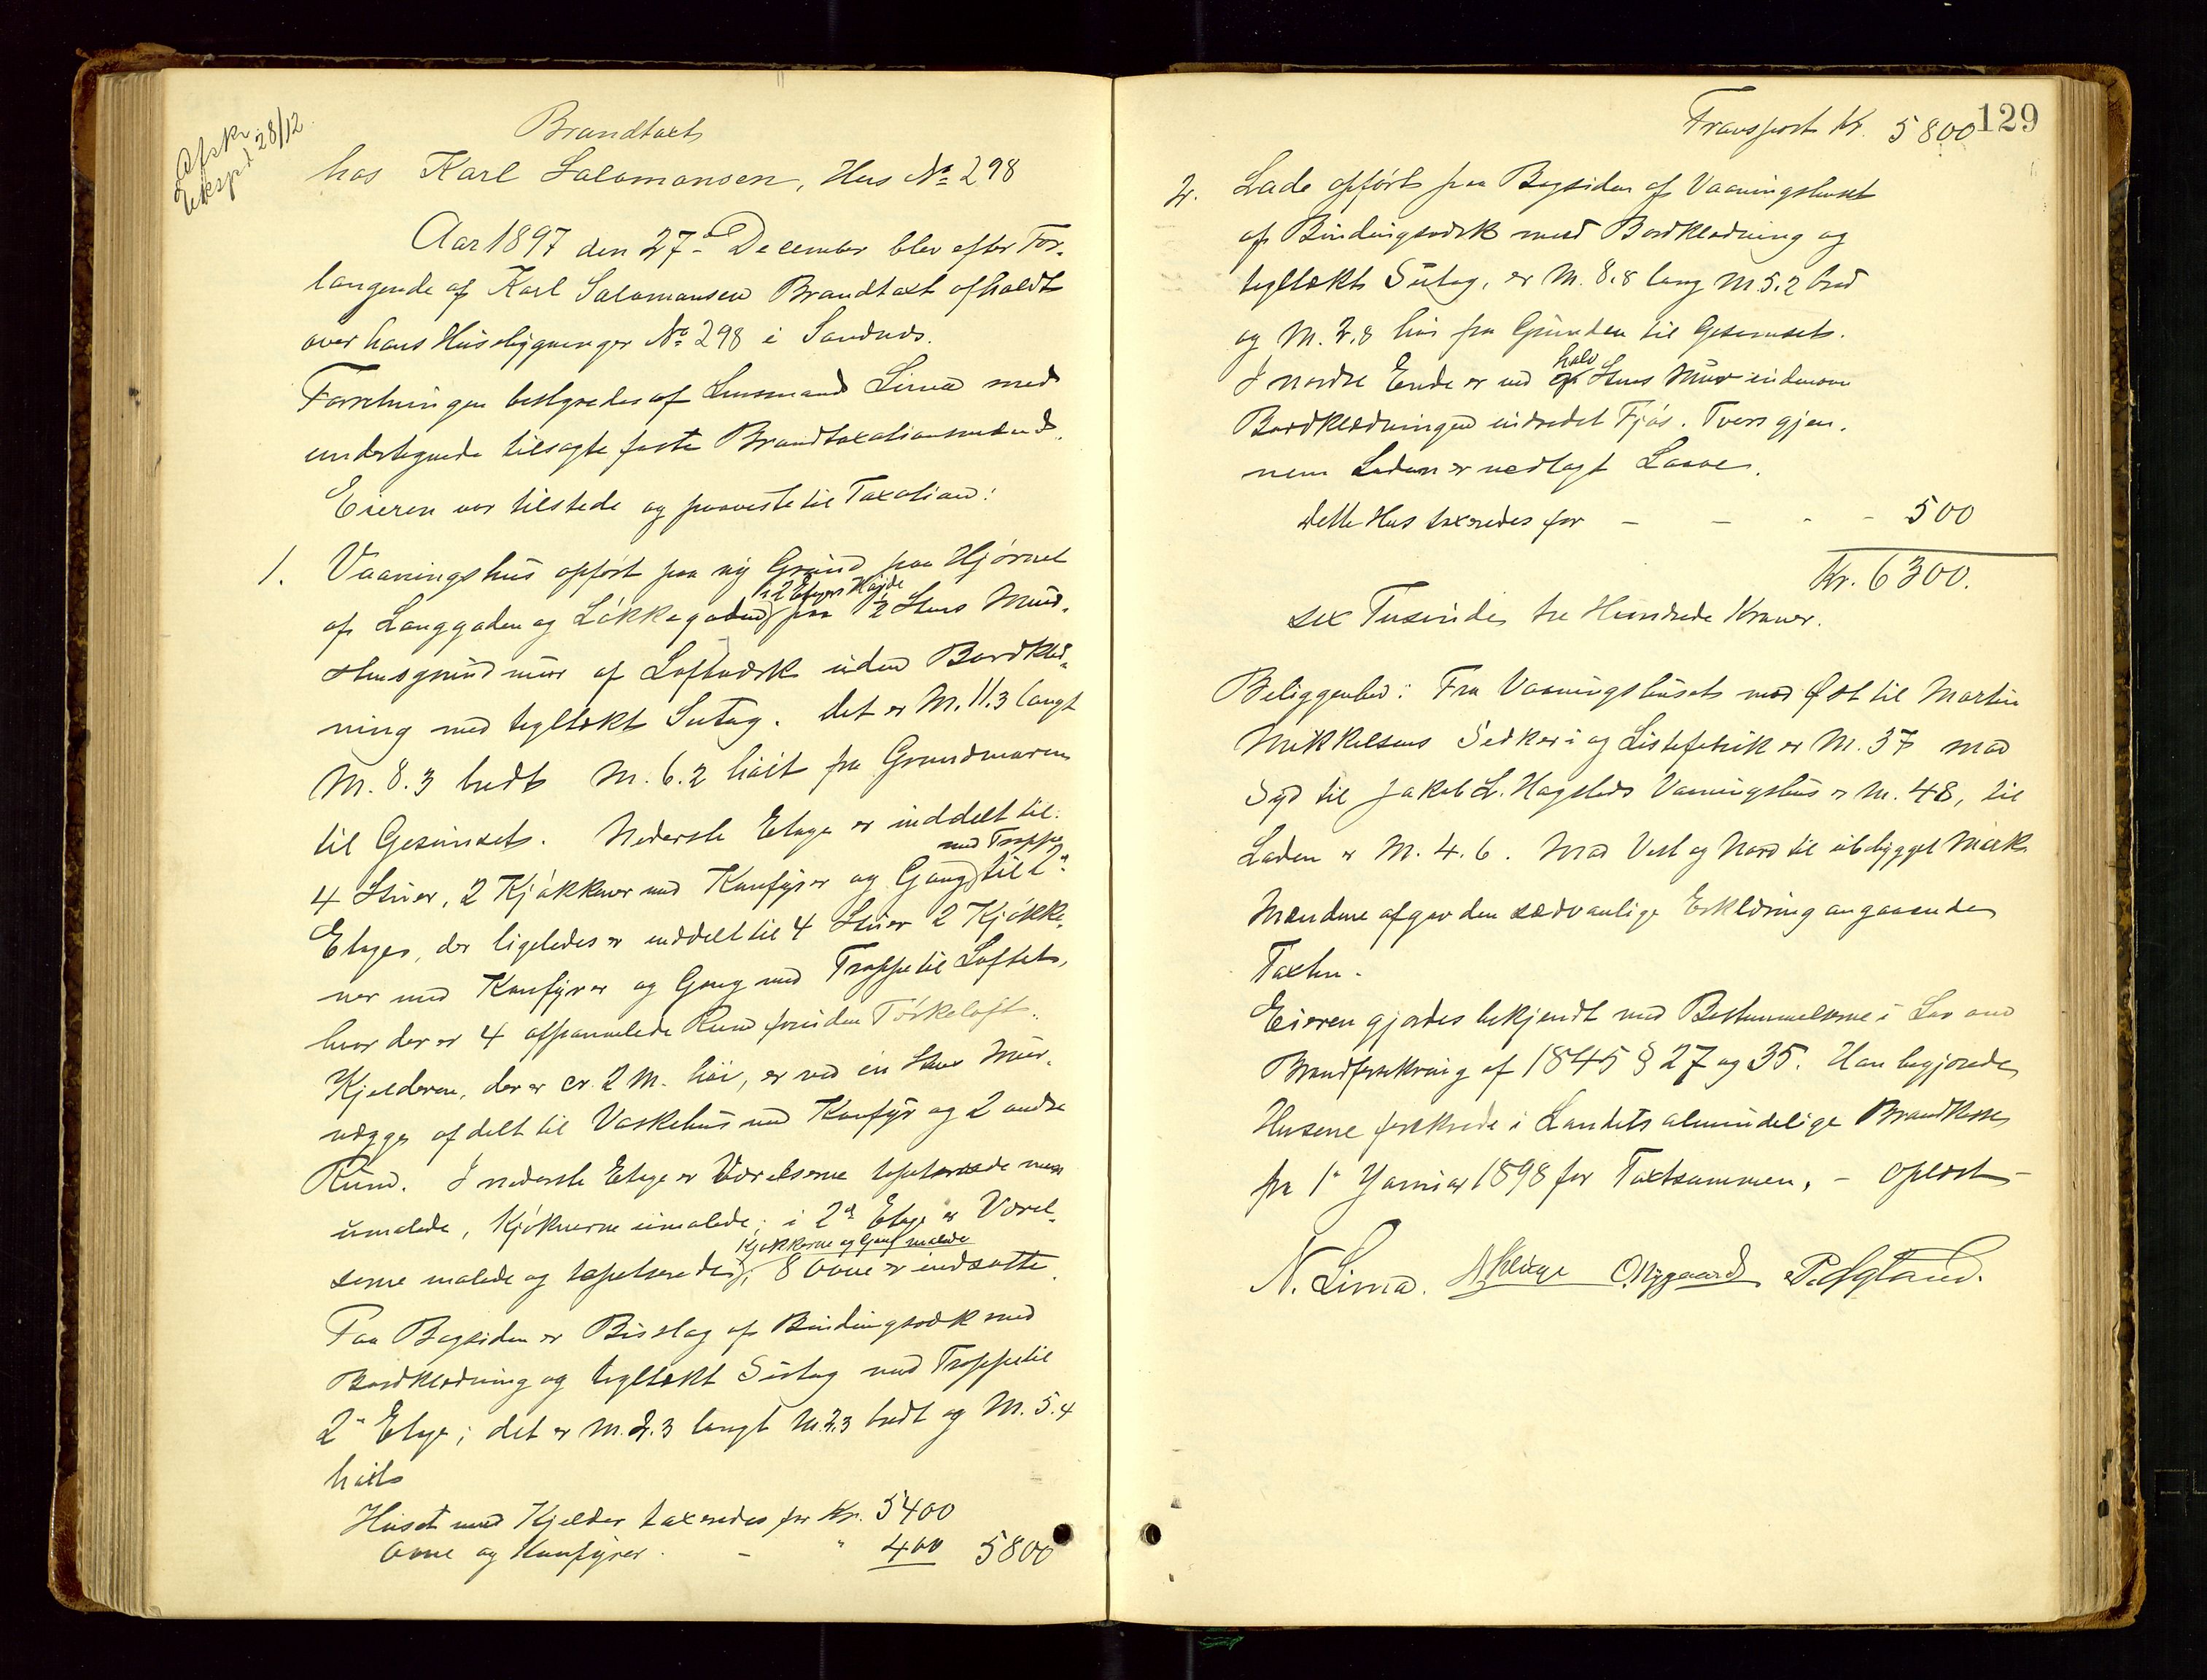 Afskr.
Ekspd 28/12.
Brandtaxt
hos Karl Salomonsen, Hus No 298
Aar 1897 den 27de December blev efter For-
langende af Karl Salomonsen Brandtaxt afholdt
over hans Husebygninger No 298 i Sandnes.
Forretningen bestyredes af Lensmand Lima med
undertegnede tilsagte faste Brandtaxationsmænd.
Eieren var tilstede og paaviste til Taxation:
1. Vaaningshus opført paa ny Grund paa Hjørnet
i 2 Etagers Høide
af Langgaden og Løkkegaden paa 1/2 Stens Mur.
Stensgrundmur af Loftværk uden Bordklæd-
ning med tegltækt Sutag. Det er M. 11.3 langt
M. 8.3 bredt M. 6.2 høit fra Grundmuren
til Gesimset. Nederste Etage er inddelt til
med Trappe
4 Stuer, 2 Kjøkkener med Komfyrer og Gang til 2"
Etage, der ligeledes er inddelt til 4 Stuer 2 Kjøkke-
ner med Komfyrer og Gang med Trappe til Loftet,
hvor der er 4 afpanelede Rum foruden Tørkeloft.
Kjelderen, der er cr. 2 M. høi, er ved en Stens Mur-
vægge afdelt til Vaskehus med Komfyr og 2 andre
Rum. I nederste Etage er Værelserne tapetserede men
umalede, Kjøknerne umalede; i 2d Etage er Værel-
Kjøkkerne og Gang malede
serne malede og tapetserede; 8 Ovne er indsatte.
Paa Bagsiden er Bislag af Bindingsværk med
Bordklædning og tegltækt Sutag med Trappe til
2" Etage; det er M. 2.3 langt M. 2.3 bredt og M. 5.4
høit
Huset med Kjelder taxeredes for Kr. 5400
Ovne og Komfyrer. - " 400 5800
129
Transport Kr. 5800
2. Lade opført paa Bagsiden af Vaaningshuset
af Bindingsværk med Bordklædning og
tegltækt Sutag, er M. 8.8 lang M. 5.2 bred
og M. 2.8 høi fra Grunden til Gesimset.
halv
I nordre Ende er ved Stens Mur indenom
Bordklædningen indredet Fjøs. Tvers gjen-
nem Laden er nedlagt Laave.
Dette Hus taxeredes for - - - - 500
Kr. 6300.
sex Tusinde tre Hundrede Kroner.
Beliggenhed: Fra Vaaningshuset mod Øst til Martin
Mikkelsens Snedkeri og Listefabrik er M. 37 mod
Syd til Jakob L. Hagsteds Vaaningshus er M. 48, til
Laden er M. 4.6. Mod Vest og Nord til ubebygget Mark
Mændene afgav den sædvanlige Erklæring angaaende
Taxten.
Eieren gjordes bekjendt med Bestemmelserne i Lov om
Brandforsikring af 1845 § 27 og 35. Han begjærede
Husene forsikrede i Landets almindelige Brandkasse
fra 1" Januar 1898 for Taxtsummen. - Oplæst -
N. Lima. O. Nygaard